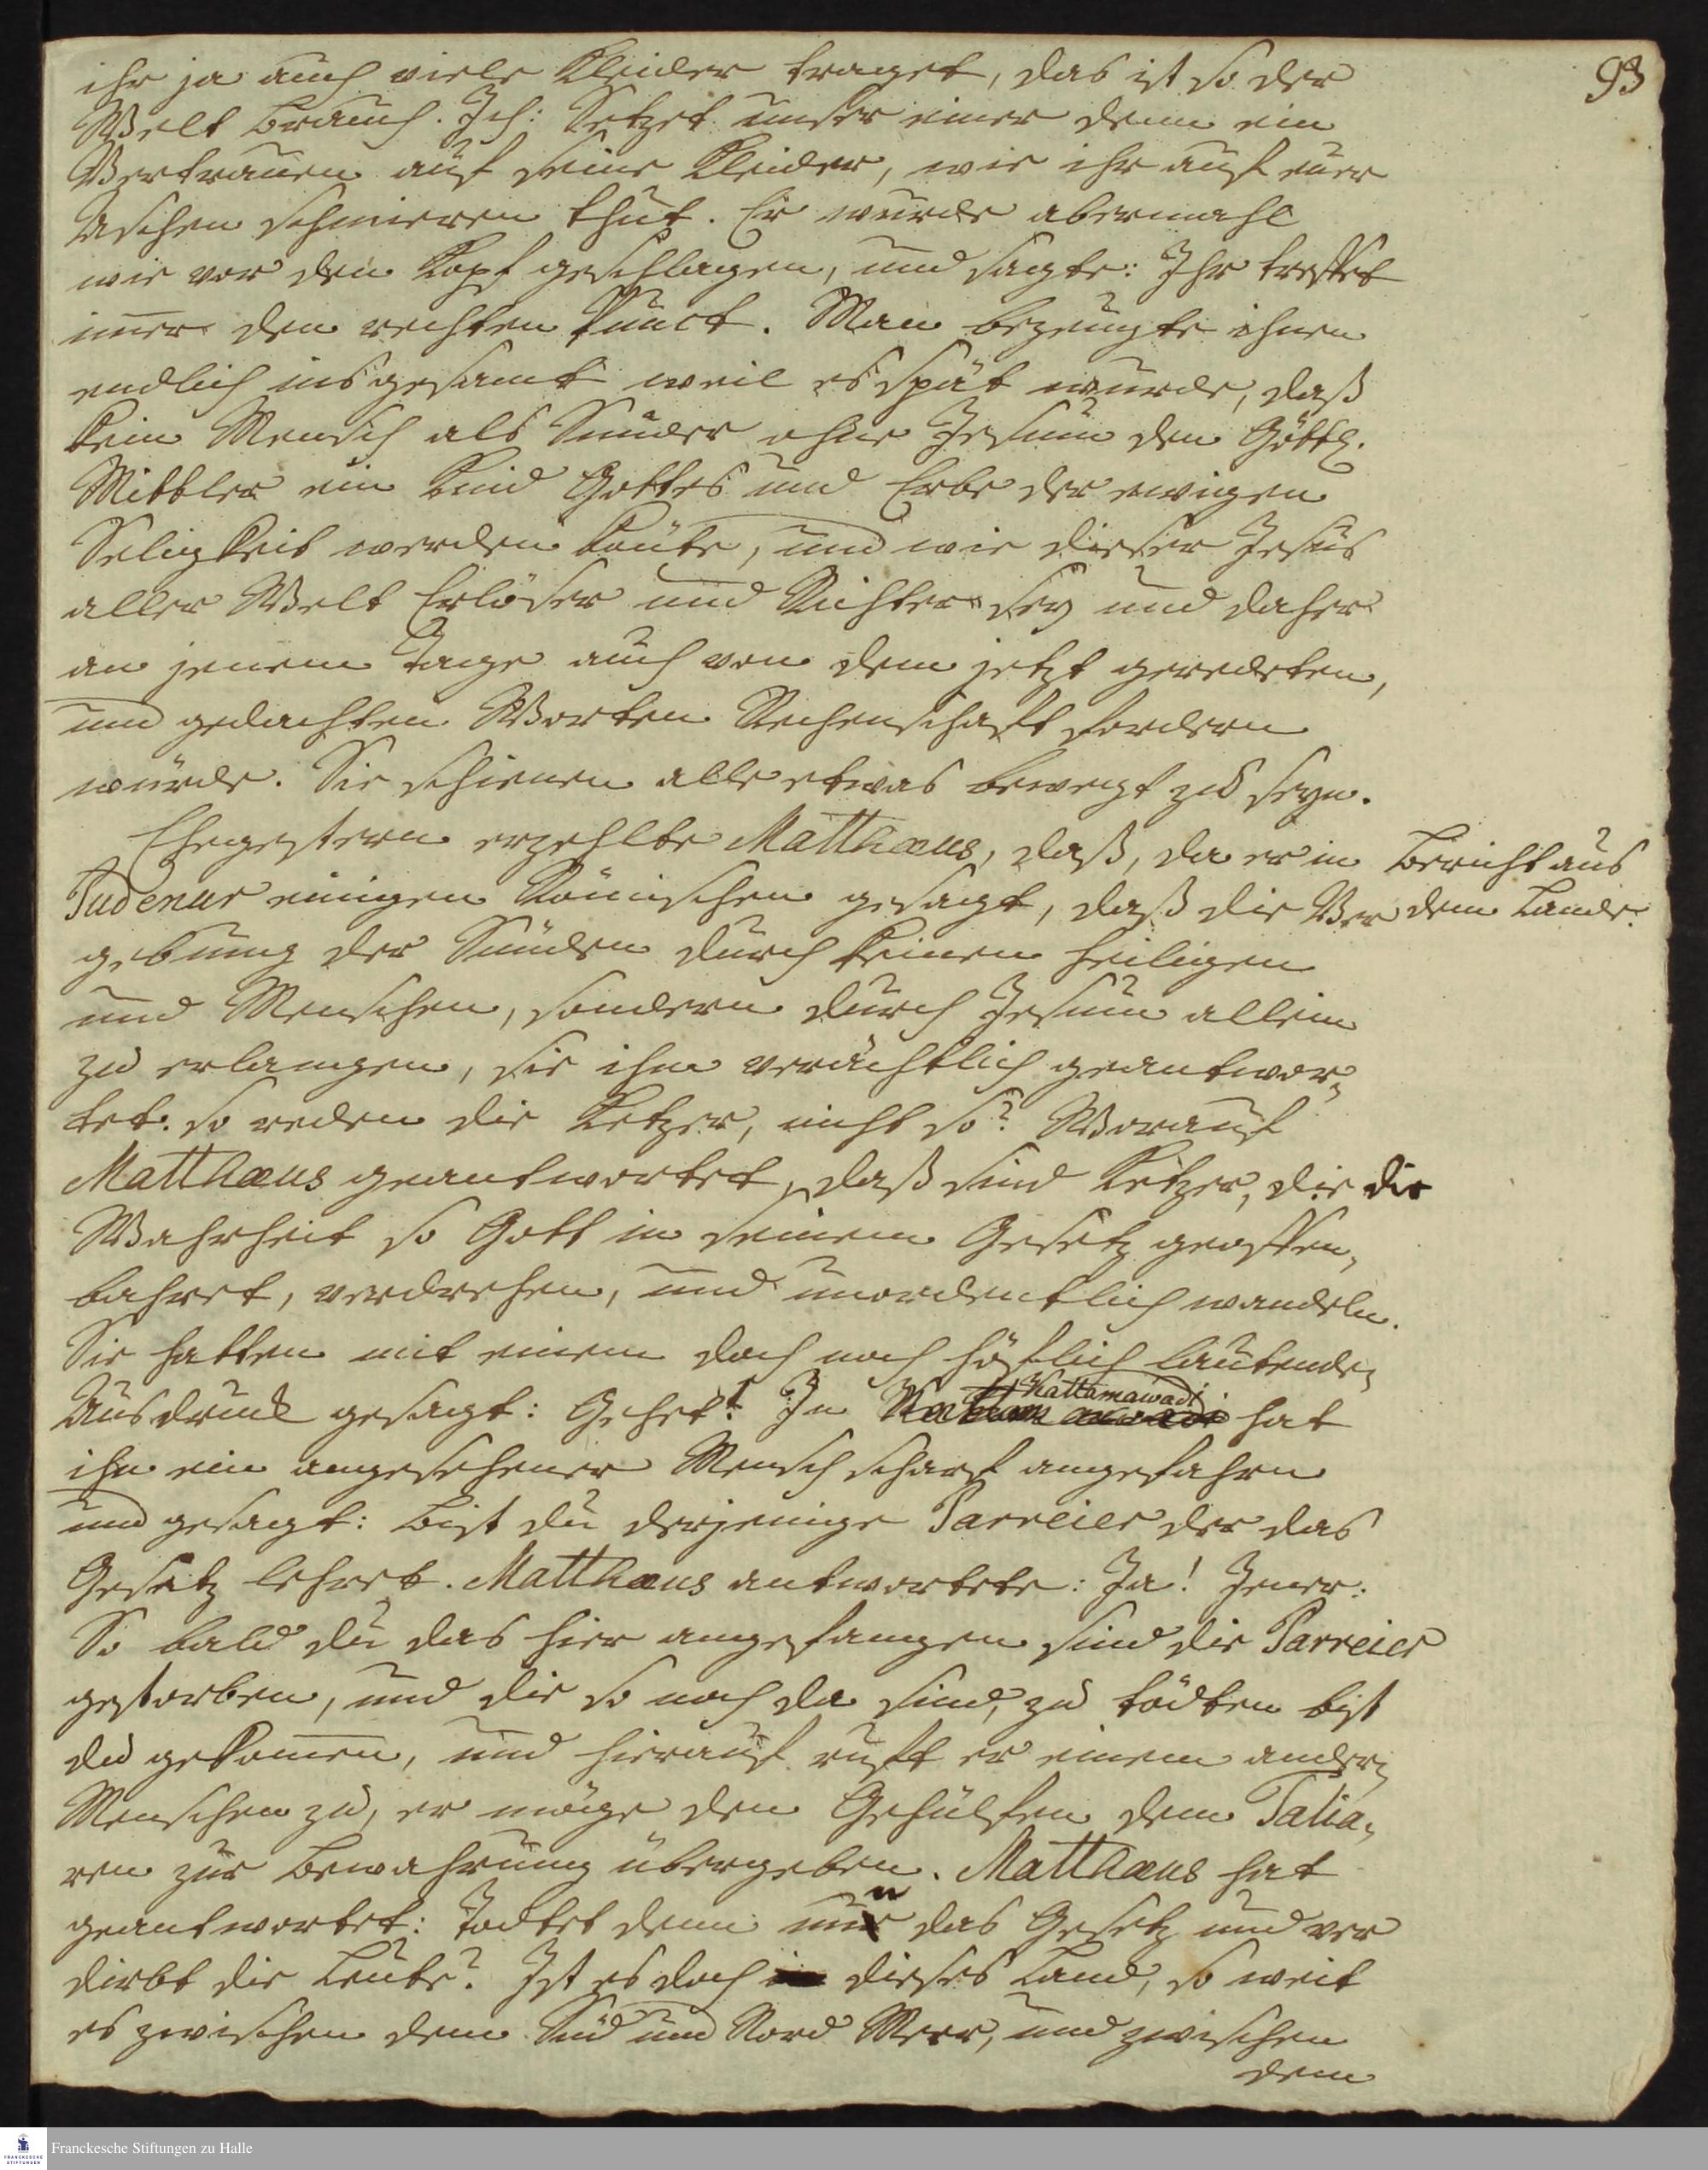 93
ihr ja auch viele Kleider traget, das ist so der
Welt Brauch. Ich: Setzet unser einer denn ein
Vertrauen auf seine Kleider, wie ihr auf euer
Aschen schmieren thut. Er wurde abermahl
wie vor den Kopf geschlagen, und sagte: Ihr treffet
im̄er den rechten Punct. Man bezeugte ihnen
endlich insgesamt weil es spät wurde, daß
kein Mensch als Sünder ohne Jesum den Göttl.
Mittler ein Kind Gottes und Erbe der ewigen
Seligkeit werden könte, und wie dieser Jesus
aller Welt Erlöser und Richter sey und daher
an jenem Tage auch von dem jetzt geredeten,
und gedachten Worten Rechenschaft fordern
würde. Sie schienen alle etwas bewegt zu seyn.
Ehegestern erzehlte Matthæus, daß, da er in
Bericht aus
Tudenur einigen Römischen gesagt, daß die Ver
dem Lande.
gebung der Sünden durch keinen Heiligen
und Menschen, sondern durch Jesum allein
zu erlangen, sie ihm verächtlich geantwor-
tet: so reden die Ketzer, nicht so? Worauf
Matthæus geantwortet, daß sind Ketzer, die die
Wahrheit so Gott in seinem Gesetz geoffen-
bahret, verdrehen, und unordentlich wandeln.
Sie hatten mit einem doch noch höflich lautenden
Ausdruck gesagt: Gehet! In Kattamawadi hat
ihn ein angesehener Mensch scharf angefahren
und gesagt: bist du derjenige Parreier der das
Gesetz lehret. Matthæus antwortete: Ja! Jener:
So bald du das hier angefangen sind die Parreier
gestorben, und die so noch da sind, zu tödten bist
du gekom̄en, und hierauf rufft er einem andern
Menschen zu, er möge den Gehülfen dem Talia-
ren zur Bewahrung übergeben. Matthæus hat
geantwortet: Tödtet denn nun das Gesetz und ver
dirbt die Leute? Ist es doch dieses Land, so weit
es zwischen dem Süd und Nord Meer, und zwischen
dem
Franckesche Stiftungen zu Halle